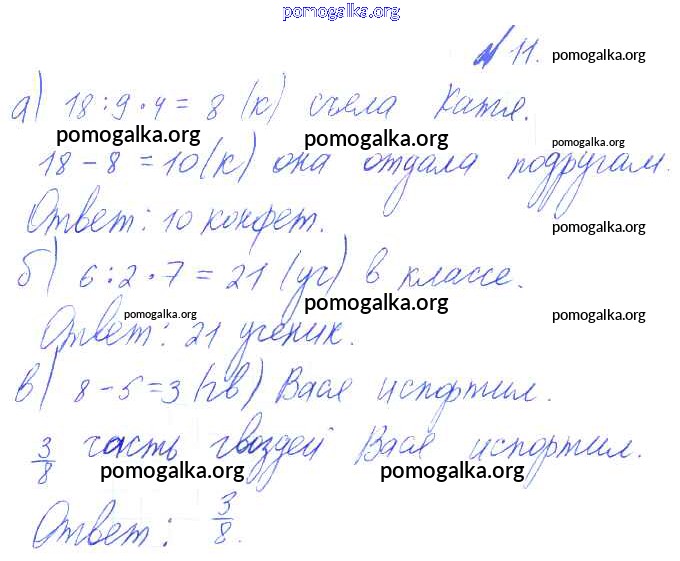 pomogalka.org
№ 11. pomogalka.org
а) 18 : 9 · 4 = 8 (к) съела Катя.
pomogalka.org pomogalka.org pomogalka.org
18 - 8 = 10 (к) она отдала подругам.
Ответ: 10 конфет. pomogalka.org
б) 6 : 2 · 7 = 21 (уч) в классе.
pomogalka.org pomogalka.org pomogalka.org
Ответ: 21 ученик.
в) 8 - 5 = 3 (гв) Вася испортил.
3/8 часть гвоздей Вася испортил.
pomogalka.org pomogalka.org
Ответ: 3/8.